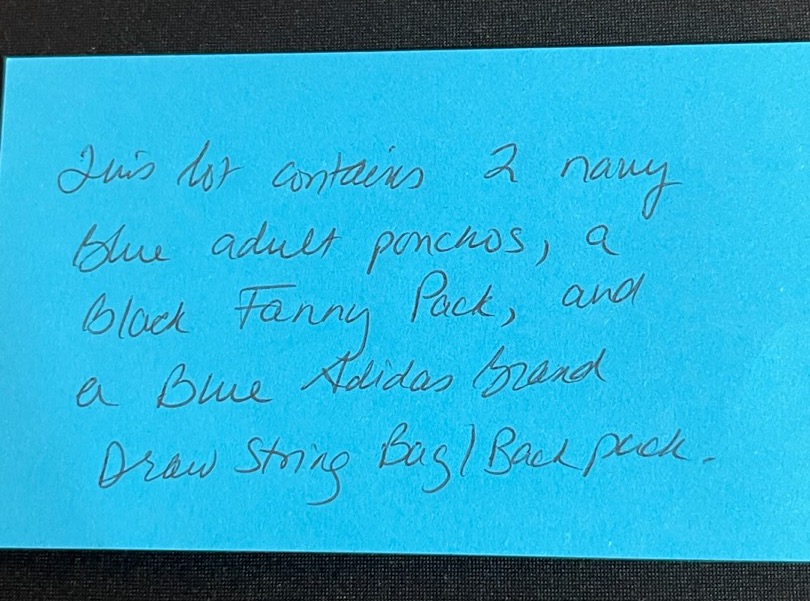 This lot contains 2 navy
blue adult ponchos, a
Black Fanny Pack, and
a Blue Adidas brand
Draw String Bag/Backpack.